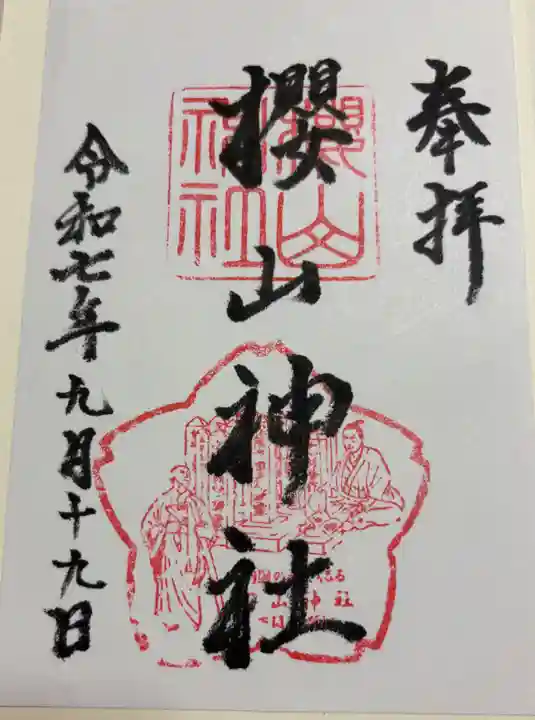 奉拝
櫻山神社
令和七年九月十九日
櫻山
神社
山神社